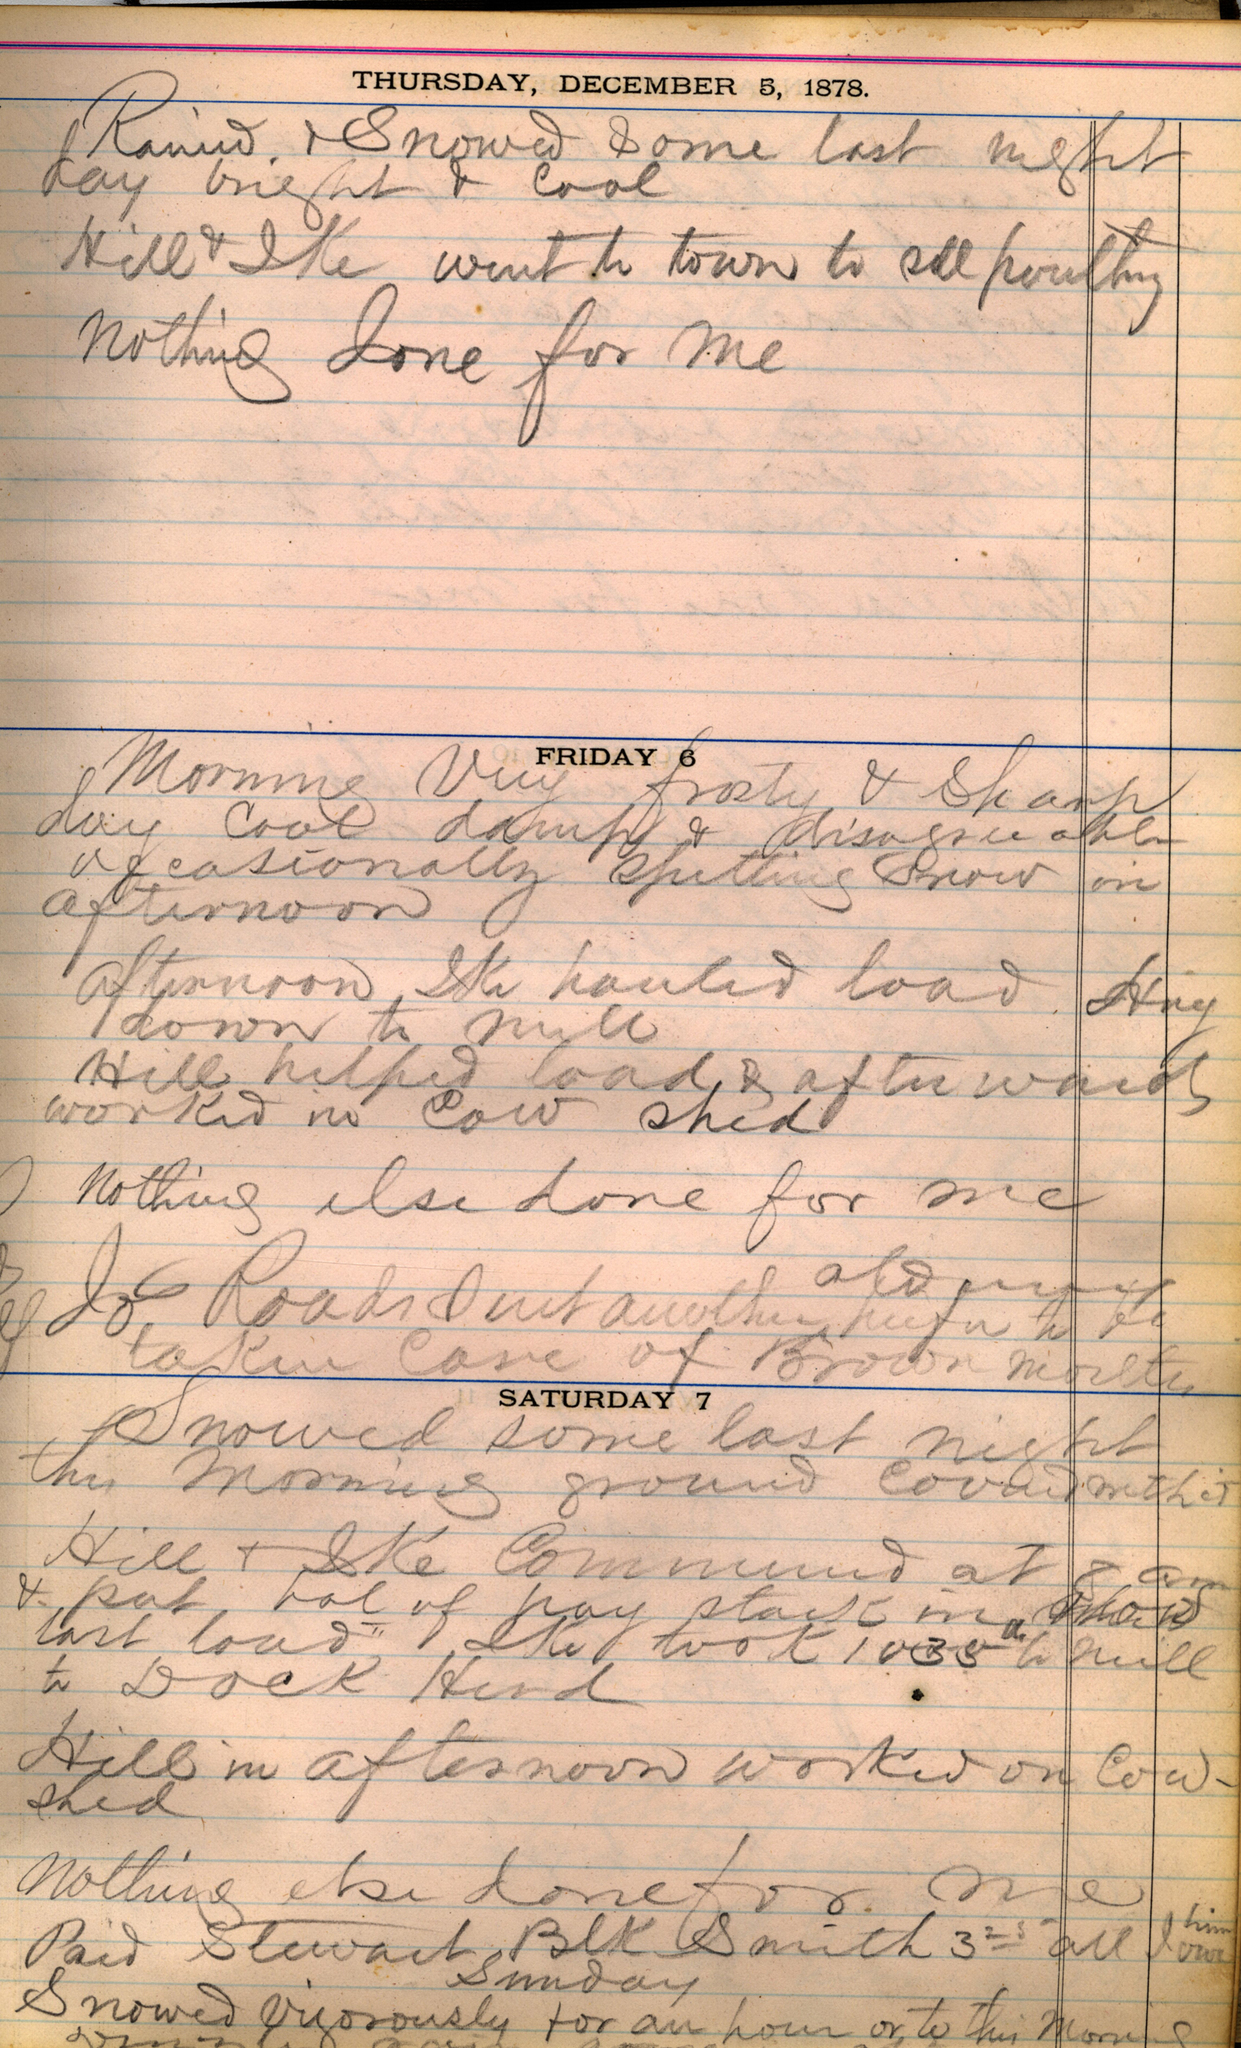 THURSDAY, DECEMBER 5, 1878.
Rained & Snowed Some last night
day bright & Cool
Hill & Ike went to town to sell poultry
Nothing done for me
FRIDAY 6
Morning Very frosty & Sharp
day Cool damp & disagreeable
occasionally Spitting Snow in
afternoon
afternoon Ike hauled load Hay
down to mill
Hill helped load & afterwards
worked in Cow shed
Nothing else done for me
Jos Roads sent another heifer to be
taken Care of Brown
SATURDAY 7
Snowed some last night
this Morning ground Coverd with it
Hill & Ike Commenced at 8 am
& put bal of hay stack in
last load " Ike took 1035 to Mill
to Dock Hird
Hill in afternoon worked on Cow-
shed
Nothing else done for me
Paid Stewart Blk Smith 3 25 all I owe
him
Sunday
Snowed Vigorously for an hour or to this Morning